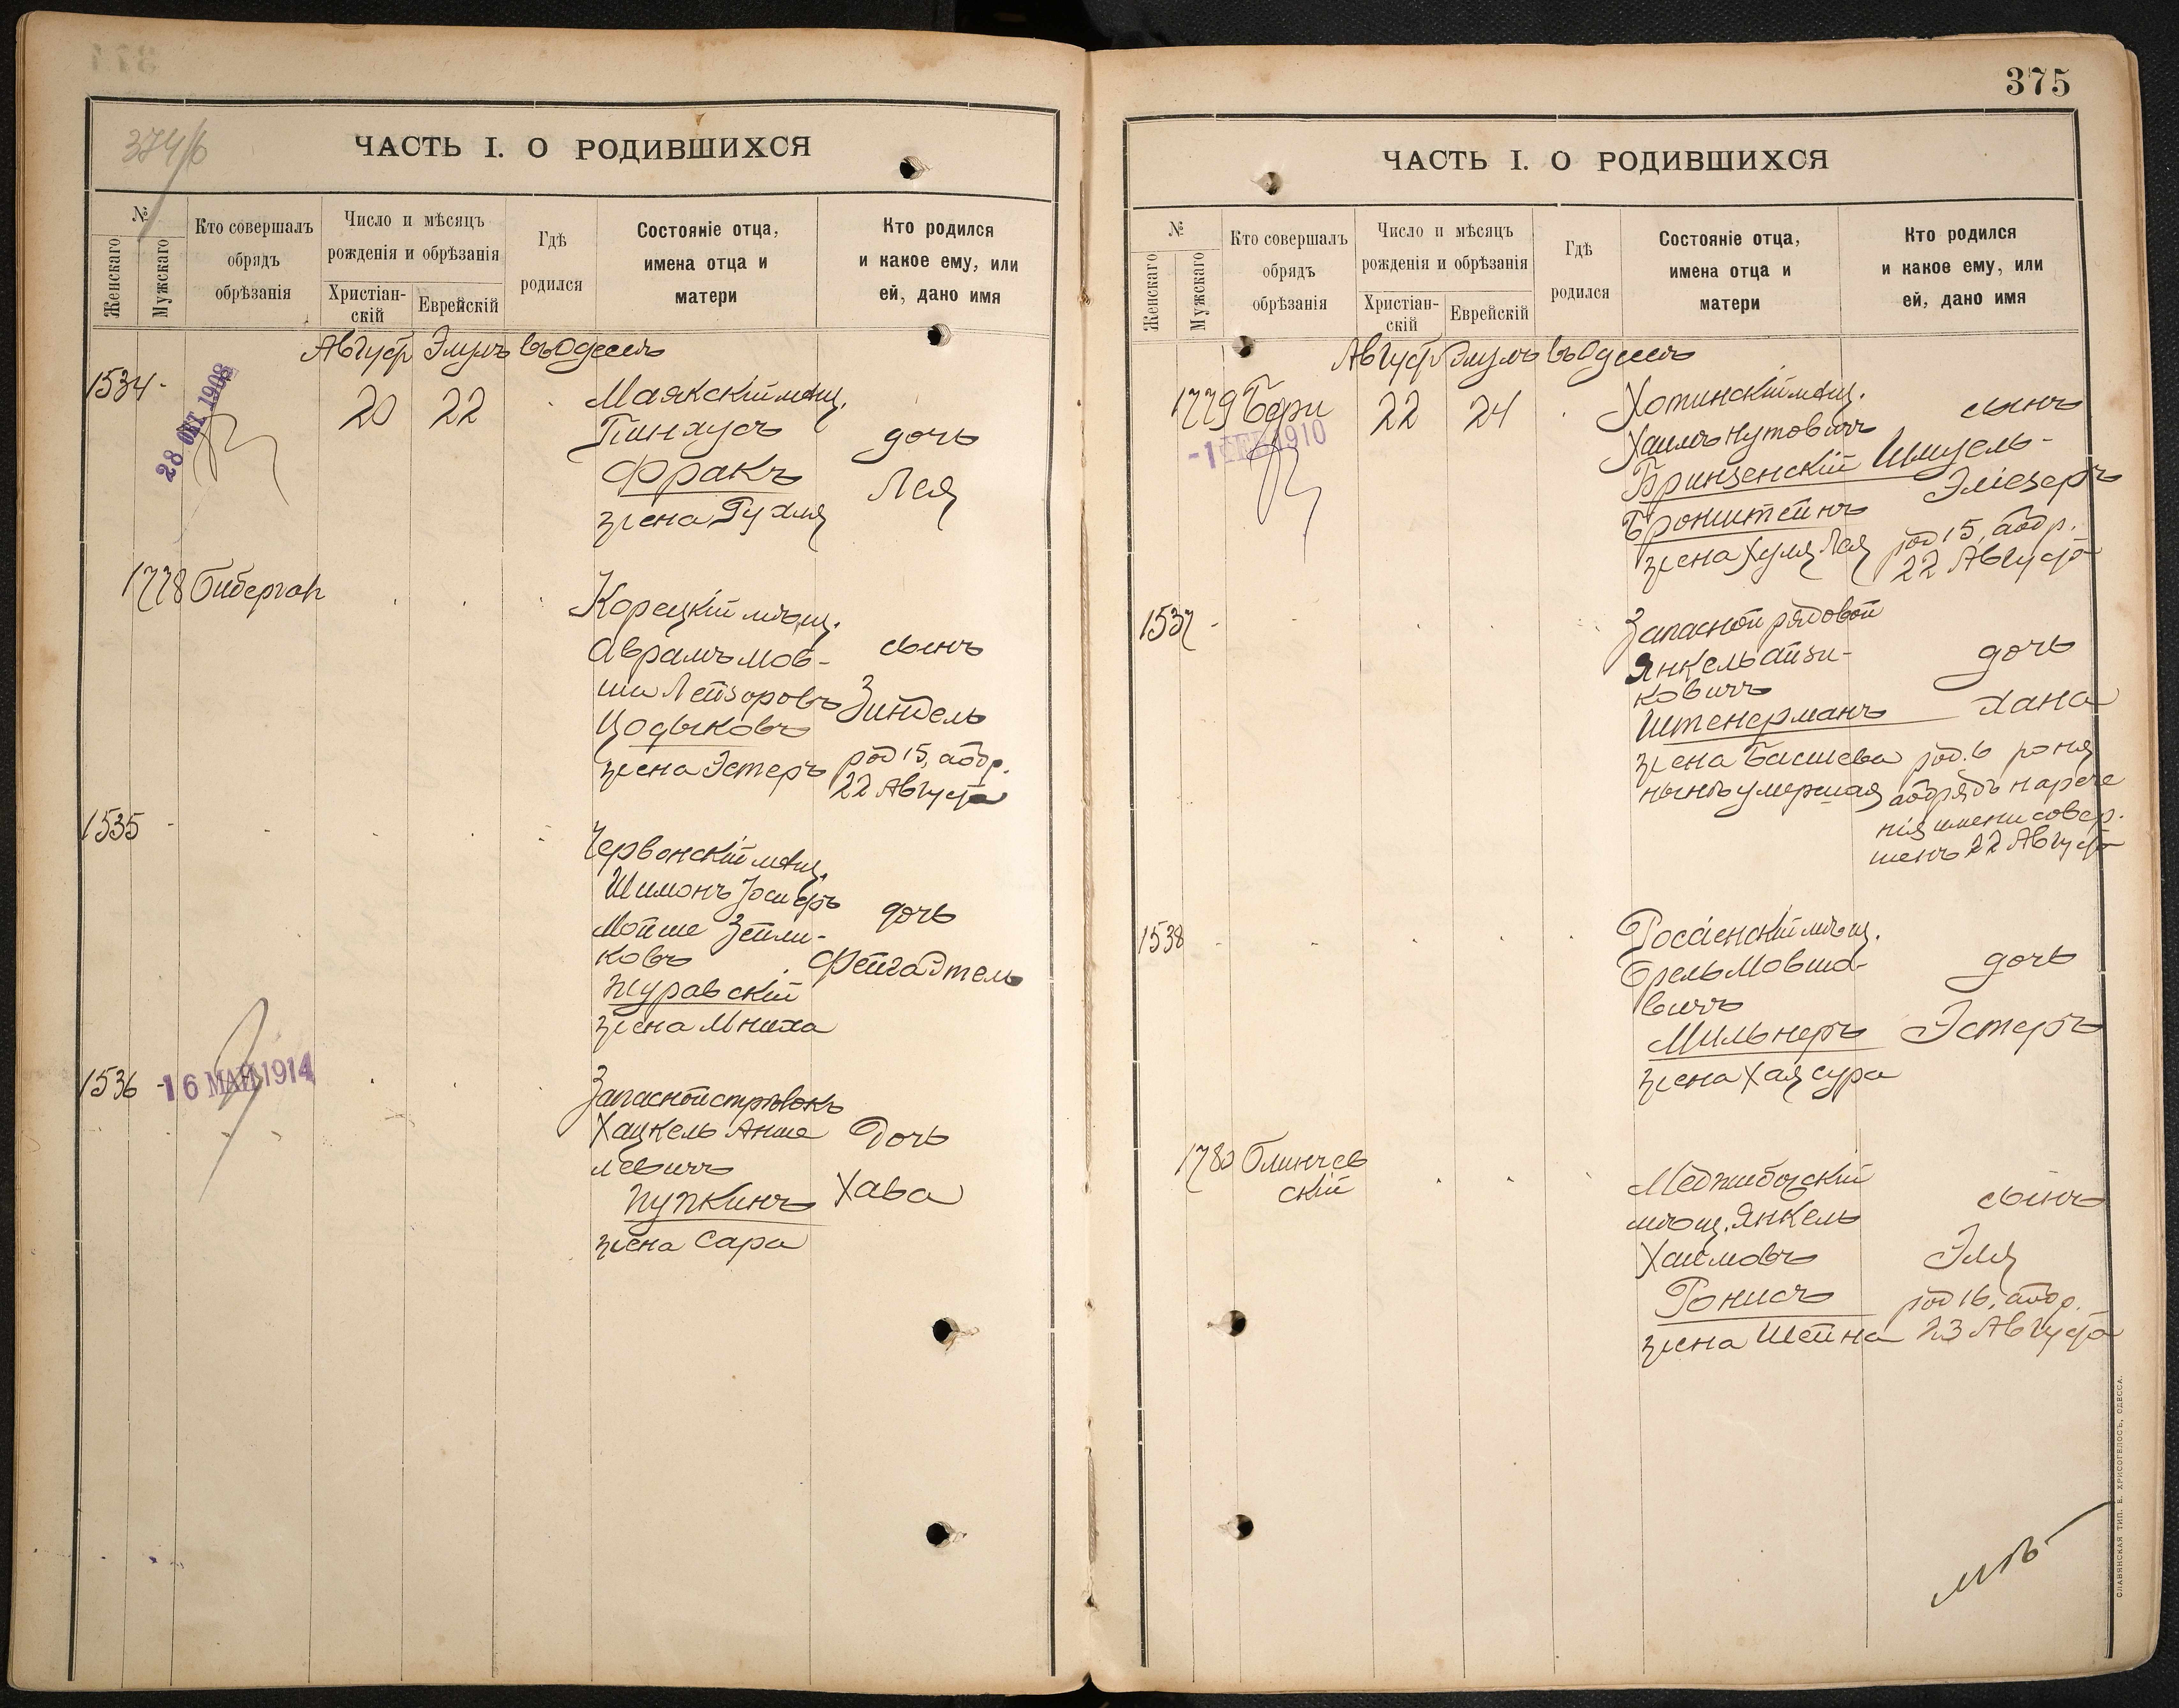 374/б
ЧАСТЬ I. О РОДИВШИХСЯ
№
Женскаго
Мужскаго
Кто совершалъ
обрядъ
обрѣзанія
Число и мѣсяцъ
рожденія и обрѣзанія
Христіан-
скій
Еврейскій
Гдѣ
родился
Состояніе отца,
имена отца и
матери
Кто родился
и какое ему, или
ей, дано имя
Августъ Элулъ въ Одессѣ
1534 -
28 ОКТ 1908
20 22
Маякскій мѣщ.
Пинхусъ
Фракъ
жена Рухля
дочь
Лея
1778 Биберган
Корецкій мѣщ.
Аврамъ Мов-
ша Лейзоровъ
Цодыковъ
жена Эстеръ
сынъ
Зиндель
род 15, аобр.
22 Августа
1535 -
Червонскій мѣщ.
Шимонъ Іосифъ
Мойше Зейли-
ковъ
Журавскій
жена Мниха
дочь
Фейга Этель
1536 -
16 МАЙ 1914
Запасной стрѣлокъ
Хацкель Анше
левичъ
Пупкинъ
жена Сара
Дочь
Хава
375
ЧАСТЬ I. О РОДИВШИХСЯ
№
Женскаго
Мужскаго
Кто совершалъ
обрядъ
обрѣзанія
Число и мѣсяцъ
рожденія и обрѣзанія
Христіан-
скій
Еврейскій
Гдѣ
родился
Состояніе отца,
имена отца и
матери
Кто родился
и какое ему, или
ей, дано имя
Августъ Элулъ въ Одессѣ
1779 Бери
-1 ФЕВ 1910
22 24
Хотинскій мѣщ.
Хаимъ Нутовичъ
Бринзенскій
Бронштейнъ
жена Хуля Лея
сынъ
Шмуель-
Эліезеръ
род 15, аобр.
22 Августа
1537 -
Запасной рядовой
Янкель Айзи-
ковичъ
Штенерманъ
жена Басшева
нынѣ умершая
дочь
Хана
род. 6
аобрядъ нарече
нія имени совер.
шенъ 22 Августа
1538 -
Россіенскій мѣщ.
Орель Мовша-
вичъ
Мильнеръ
жена Хая Сура
дочь
Эстеръ
1780 Блинчев
скій
Меджибожскій
мѣщ. Янкель
Хаимовъ
Ронисъ
жена Шейна
сынъ
Эля
род 16, аобр.
23 Августа
СЛАВЯНСКАЯ ТИП. Е. ХРИСОГЕЛОСЪ, ОДЕССА.